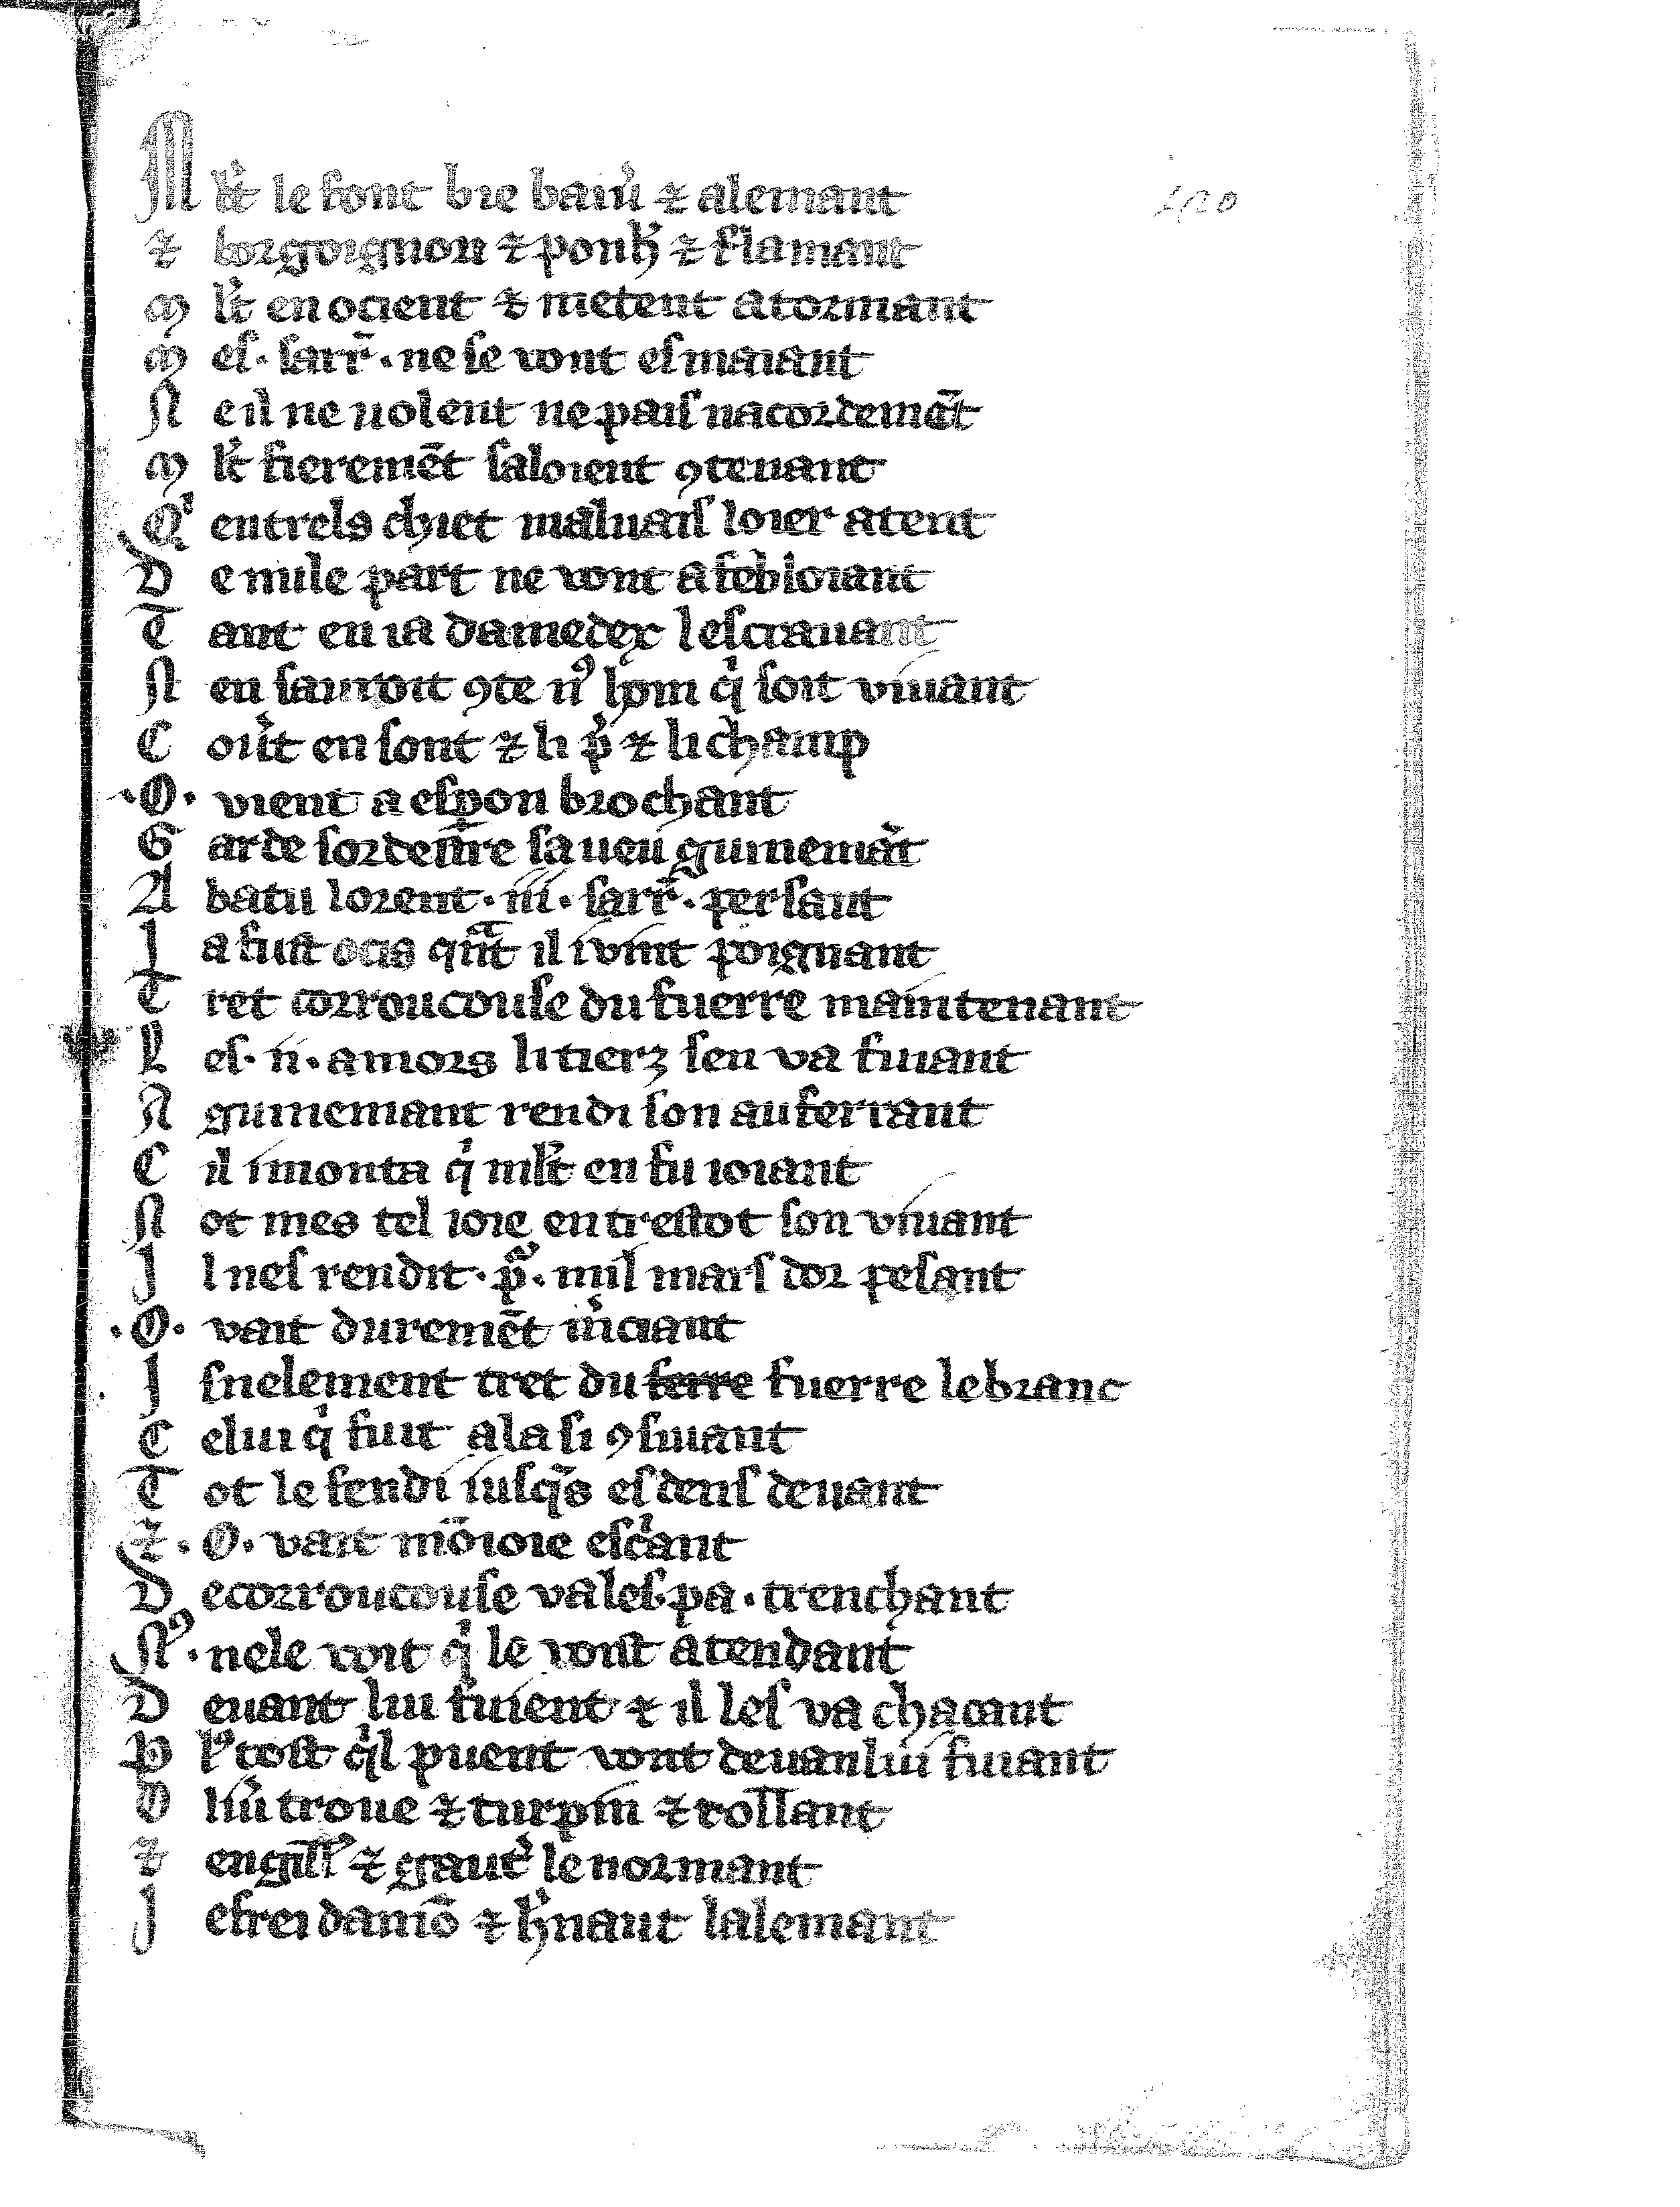 M lt̉ le font bie baiu̓ ⁊ alemant
⁊ borgoignon ⁊ ponh̓ ⁊ flamant
M lt̉ en ocient ⁊ metent a tormant
M es · sarr̄ · ne se vont esmaiant
N e il ne uolent ne pais nacordemēt
M lt̉ fieremēt saloient ꝯtenant
Qͥ entrels chiet maluais loier atent
D e nule part ne vont afebloiant
T ant en ia damedex lescrauant
N en sauroit ꝯte nꝰ hom qͥ soit viuant
C ou̓t en sont ⁊ li p̓ ⁊ li champ
· O · vient a esp̱on brochant
G arde sor destre sa ueu guinemāt
A batu lorent · iii · sarr̄ · persant
J a fust ocis qᵃnt il i vint poignant
T ret corroucouse du fuerre maintenant
L es · ii · a mors li tierz sen va fuiant
A guinemant rendi son auferrant
C il i monta qͥ mlt̉ en fu ioiant
N ot mes tel ioie en trestot son viuant
J l nes rendit · pͬ · mil mars dor pesant
· O · vait duremēt m̓ciant
J snelement tret du ferre fuerre le branc
C elui qͥ fuit ala si ꝯsiuant
T ot le fendi iusqᵃs es dens deuant
⁊ · O · vait mōioie escͥant
D e corroucouse va les · pa · trenchant
Nꝰ · nele voit qͥ le vont atendant
D euant lui fuient ⁊ il les va chacant
P lꝰ tost qͥl puent vont deuan lui fuiant
O liu̓ troue ⁊ turpin ⁊ rollant
⁊ engill̓ ⁊ gaut̓ le normant
J efrei daniō ⁊ h̓naut lalemant